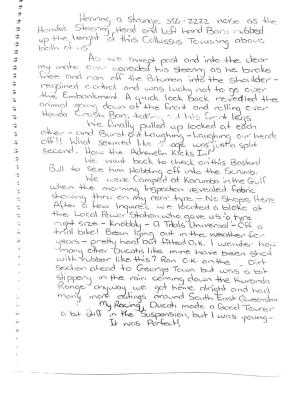 Hearing a strange SSS-ZZZZ noise as the
Honda's Steering Head and Left hand Bars rubbed
up the lenght of this Collussus Towering above
both of us
As we swept past and into the clear
my mate over corrected his steering as he broke
free and ran off the Bitumen into the shoulder -
regained control and was lucky not to go over
the Embankment A quick look back revealled the
animal going down at the front and rolling over
Honda Crash Bars taking out his front legs
We finally pulled up looked at each
other - and Burst out Laughing - Laughing our heads
off!! What seemed like 5 age was just a split
second. How the Adrenelin Kicks In!
We want to back check on this Bastard
Bull to see him Hobbling off into the Scrub.
We were Camped at Karumba in the Gulf
when the morning Inspection revealed fabric
showing thru on my rear tyre - No Shops Here
After a few Inquires we located a bloke at
the Local Power Station who gave us a tyre
right size - knobbly - A Trials Universal - Off a
trial bike! Been lying out in the weather for
years - pretty hard but fitted O.K. I wonder how
many other Ducatis like mine have been shod
with rubber like this? Ran O.K. on the Dirt
section ahead to George Town but was a bit
slippery in the rain coming down the Kuranda
Range Anyway we got home alright and had
many more outings around South East Queensland
My Racing Ducati made a Good Tourer
a bit stiff in the Suspension, but I was young -
It was Perfect!